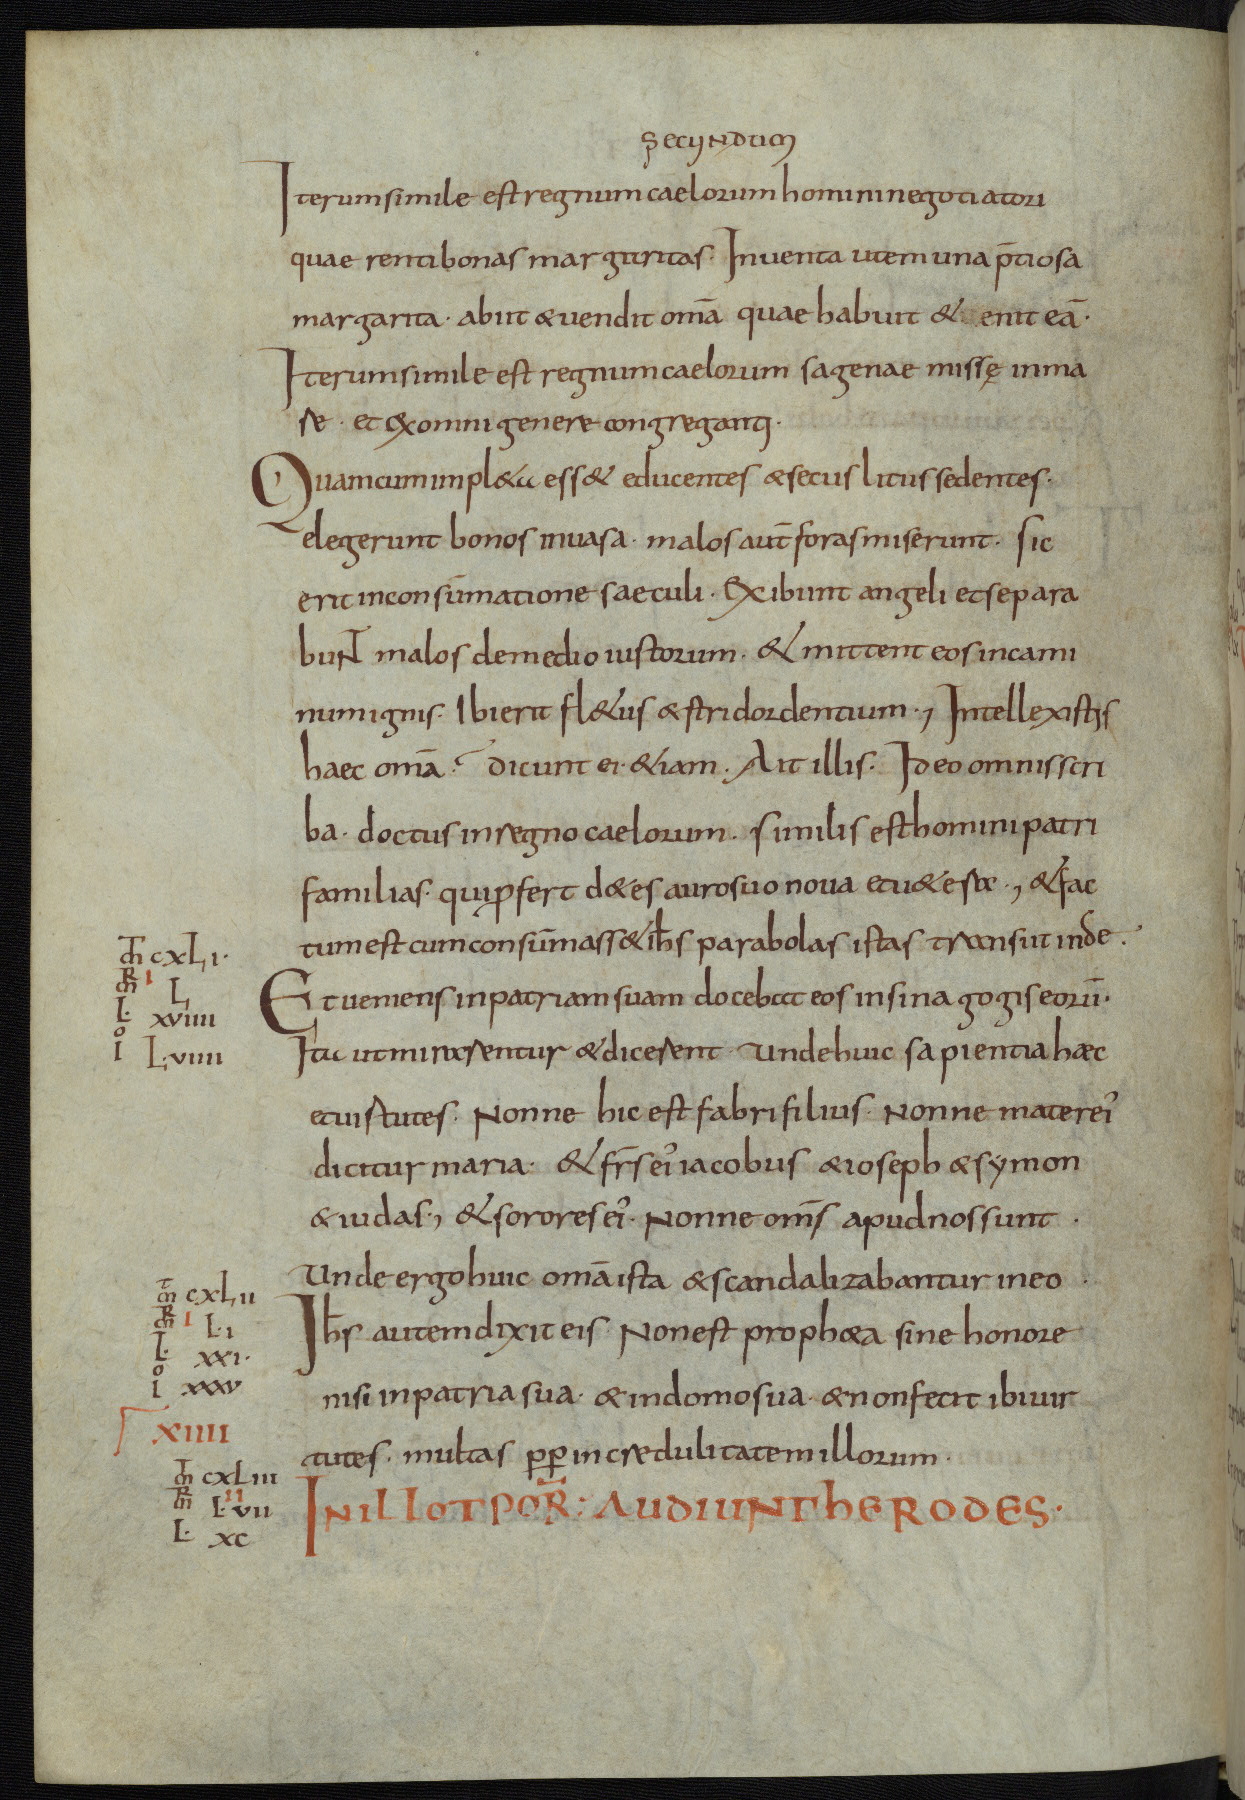 secundum
Iterum simile est regnum caelorum homini negotiatori
quaerenti bonas margaritas. Inventa utem una p̄tiosa
margarita. abiit & vendit om̄a quae habuit & enit eā.
Iterum simile est regnum caelorum sagenae missę in ma
re. et ex omni genere congreganti.
Quam cum impl&a ess& educentes & secus litus sedentes.
elegerunt bonos in vasa. malos aut̄ foras miserunt. sic
erit in consūmatione saeculi. Exibunt angeli et separa
buNT malos de medio iustorum. & mittent eos in cami
num ignis. Ibi erit fl&us & stridor dentium., Intellexistis
haec om̄a? dicunt ei. &iam. Ait illis. Ideo omnis scri
ba. doctus in regno caelorum. similis est homini patri
familias. qui ꝓfert d& es auro suo nova et u&era., & fac
tum est cum consūmass& ih̄s parabolas istas transiit inde.
cxli.
I L
L. xviiii
o
I L.viiii
Et veniens in patriam suam docebat eos in sinagogis eorū.
Ita ut mirarentur & dicerent unde huic sapientia haec
et uirtutes. Nonne hic est fabri filius. Nonne mater ei'
dicitur maria. & fr̄s ei' iacobus & ioseph & symon
& iudas., & sorores ei'. Nonne om̄s apud nos sunt.
Unde ergo huic om̄a ista & scandalizabantur in eo.
cxlii
I L.i
L. xxi.
o
I xxxv
Ih̄s autem dixit eis. Non est proph&a sine honore
nisi in patria sua. & in domo sua. & non fecit ibi uir
xiiii
tutes. multas ꝓp in credulitatem illorum.
cxliii
II L.vii
L. xc
IN ILLO TPOR̄: AUDIUNT hERODES.